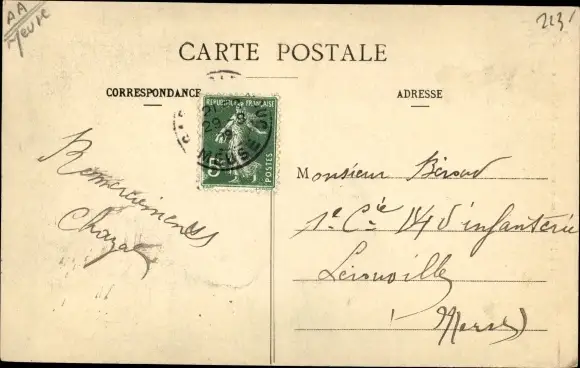 AA
Meuse
223
CARTE POSTALE
CORRESPONDANCE
ADRESSE
REPUBLIQUE FRANÇAISE
POSTES
29 9
MEUSE
Remerciements
Chazal
Monsieur Béroud
1e Cie 14 d'infanterie
Lérouville
Meuse